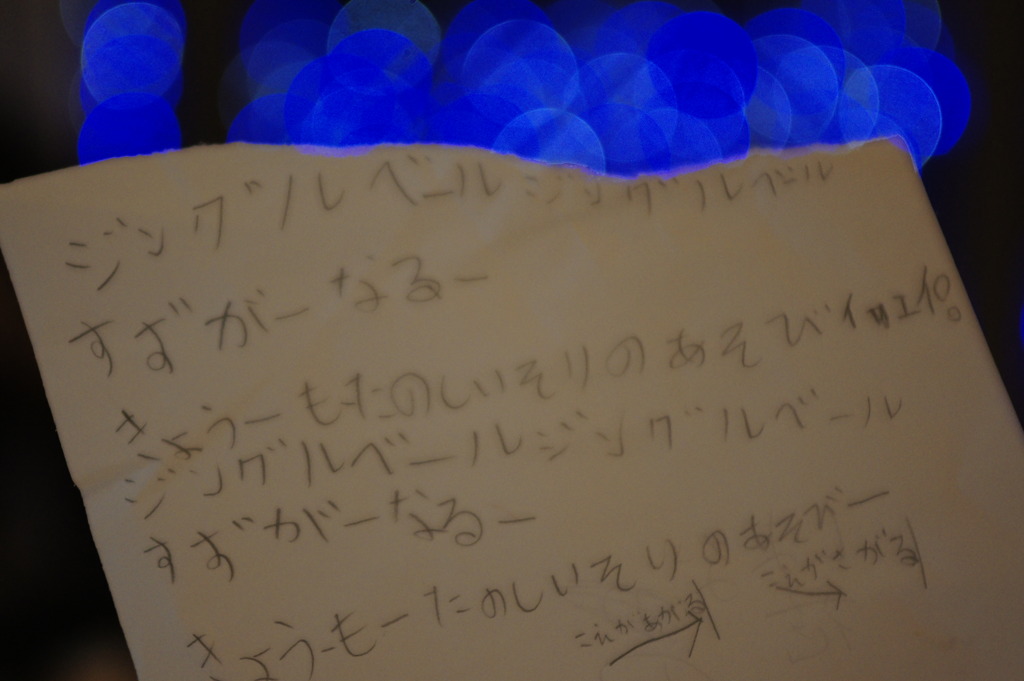 ジングルベールジングルベール
すずがーなるー
きょうーもたのしいそりのあそびイッエイ。
ジングルベールジングルベール
すずがーなるー
きょうーもーたのしいそりのあそびー
こえがあがる
こえがさがる